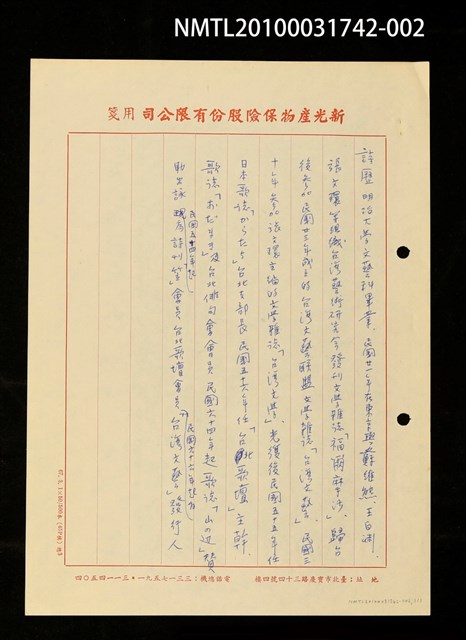 NMTL20100031742-002
新光產物保險股份有限公司用箋
學歷 明治大學文藝科畢業、民國廿一年在東京與蘇維熊王白淵、
張文環等組織台灣藝術研究會發刊文學雜誌「福爾摩沙」歸台
後參加民國廿三年成立的台灣文藝聯盟文學雜誌「台灣文藝」民國三
十年參加張文環主編的文學雜誌「台灣文學」光復後民國五十五年任
日本歌誌「からたち」台北支部長民國五十六年任「台北歌壇」主幹
歌誌「あだまき」及台北俳句會會員民國六十四年起歌誌「山の辺」贊
助出詠 民國五十四年起「笠」會員台北歌壇會員 民國六十六年起「台灣文藝」發行人
地址：臺北市寶慶路三十四號四樓　電話總機：三三一七五九一・三一一四五〇四
NMTL20100031742-002